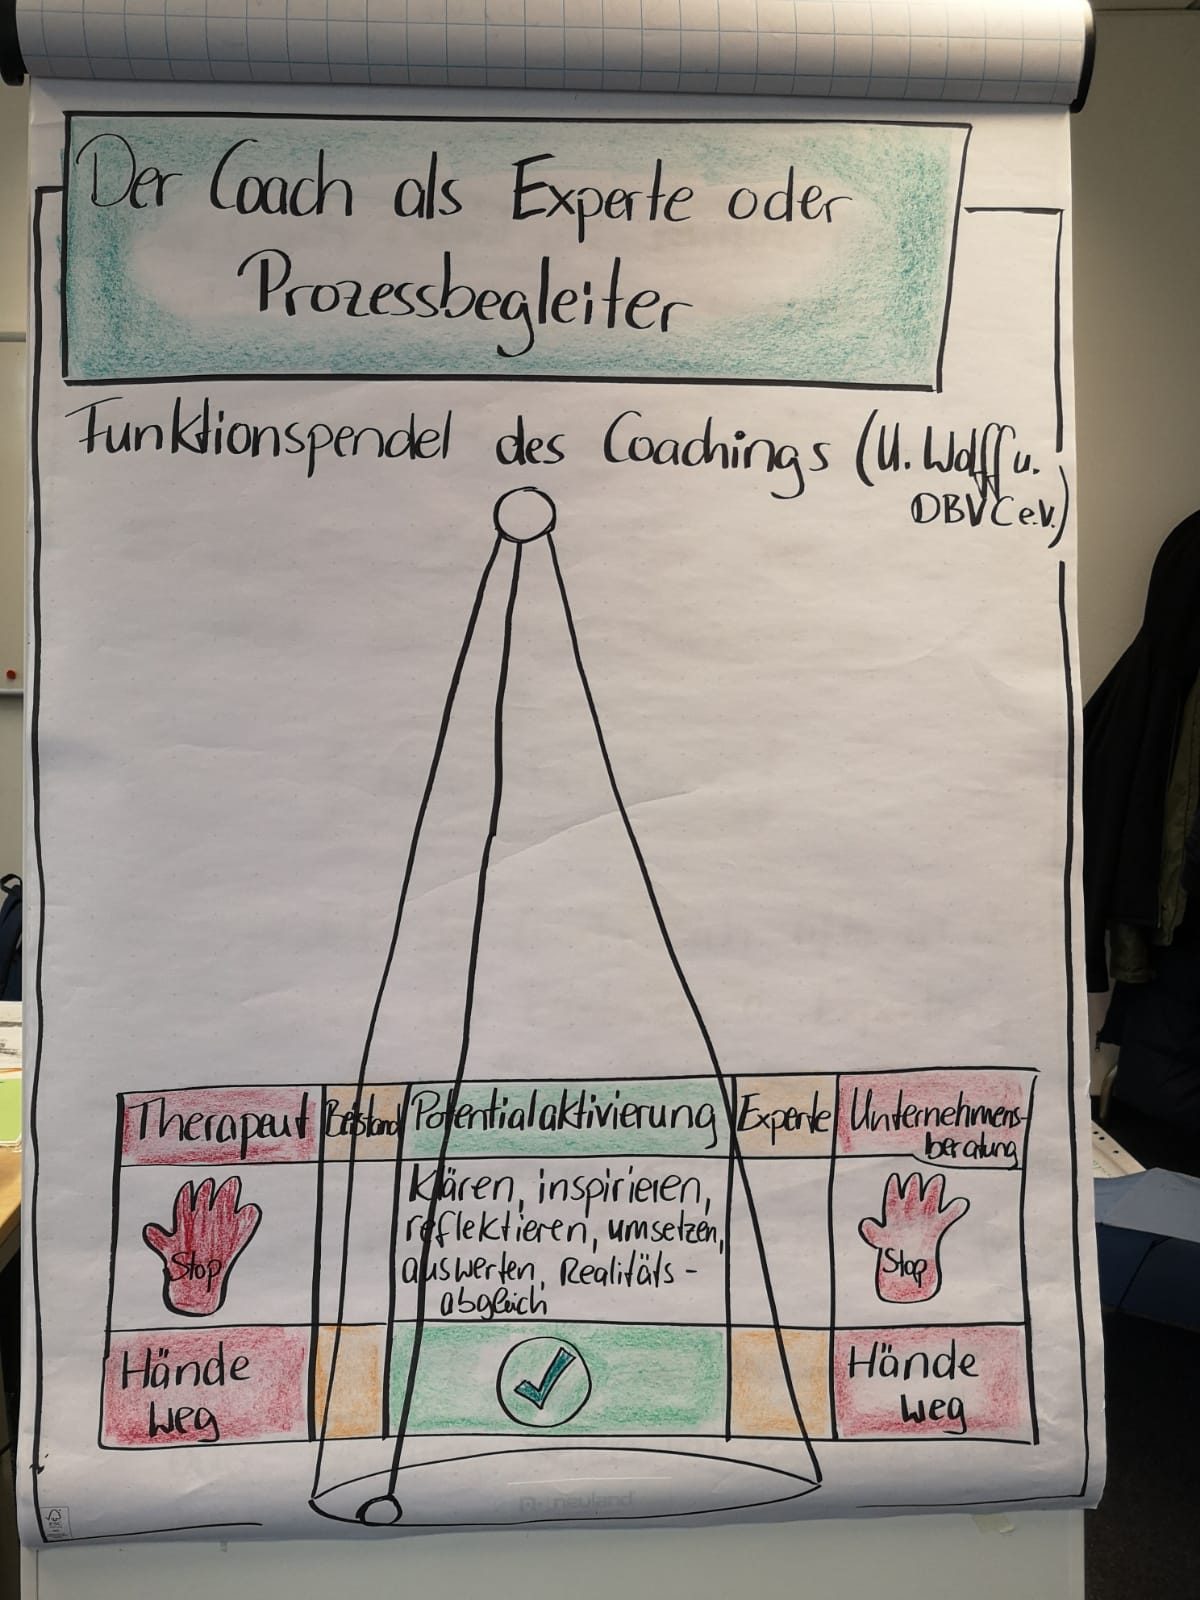 Der Coach als Experte oder
Prozessbegleiter
Funktionspendel des Coachings (U. Wolff u.
DBVC e.V.)
Therapeut
Beistand
Potentialaktivierung
Experte
Unternehmens-
beratung
Stop
klären, inspirieren,
reflektieren, umsetzen,
auswerten, Realitäts-
abgleich
Stop
Hände
weg
Hände
weg
neuland